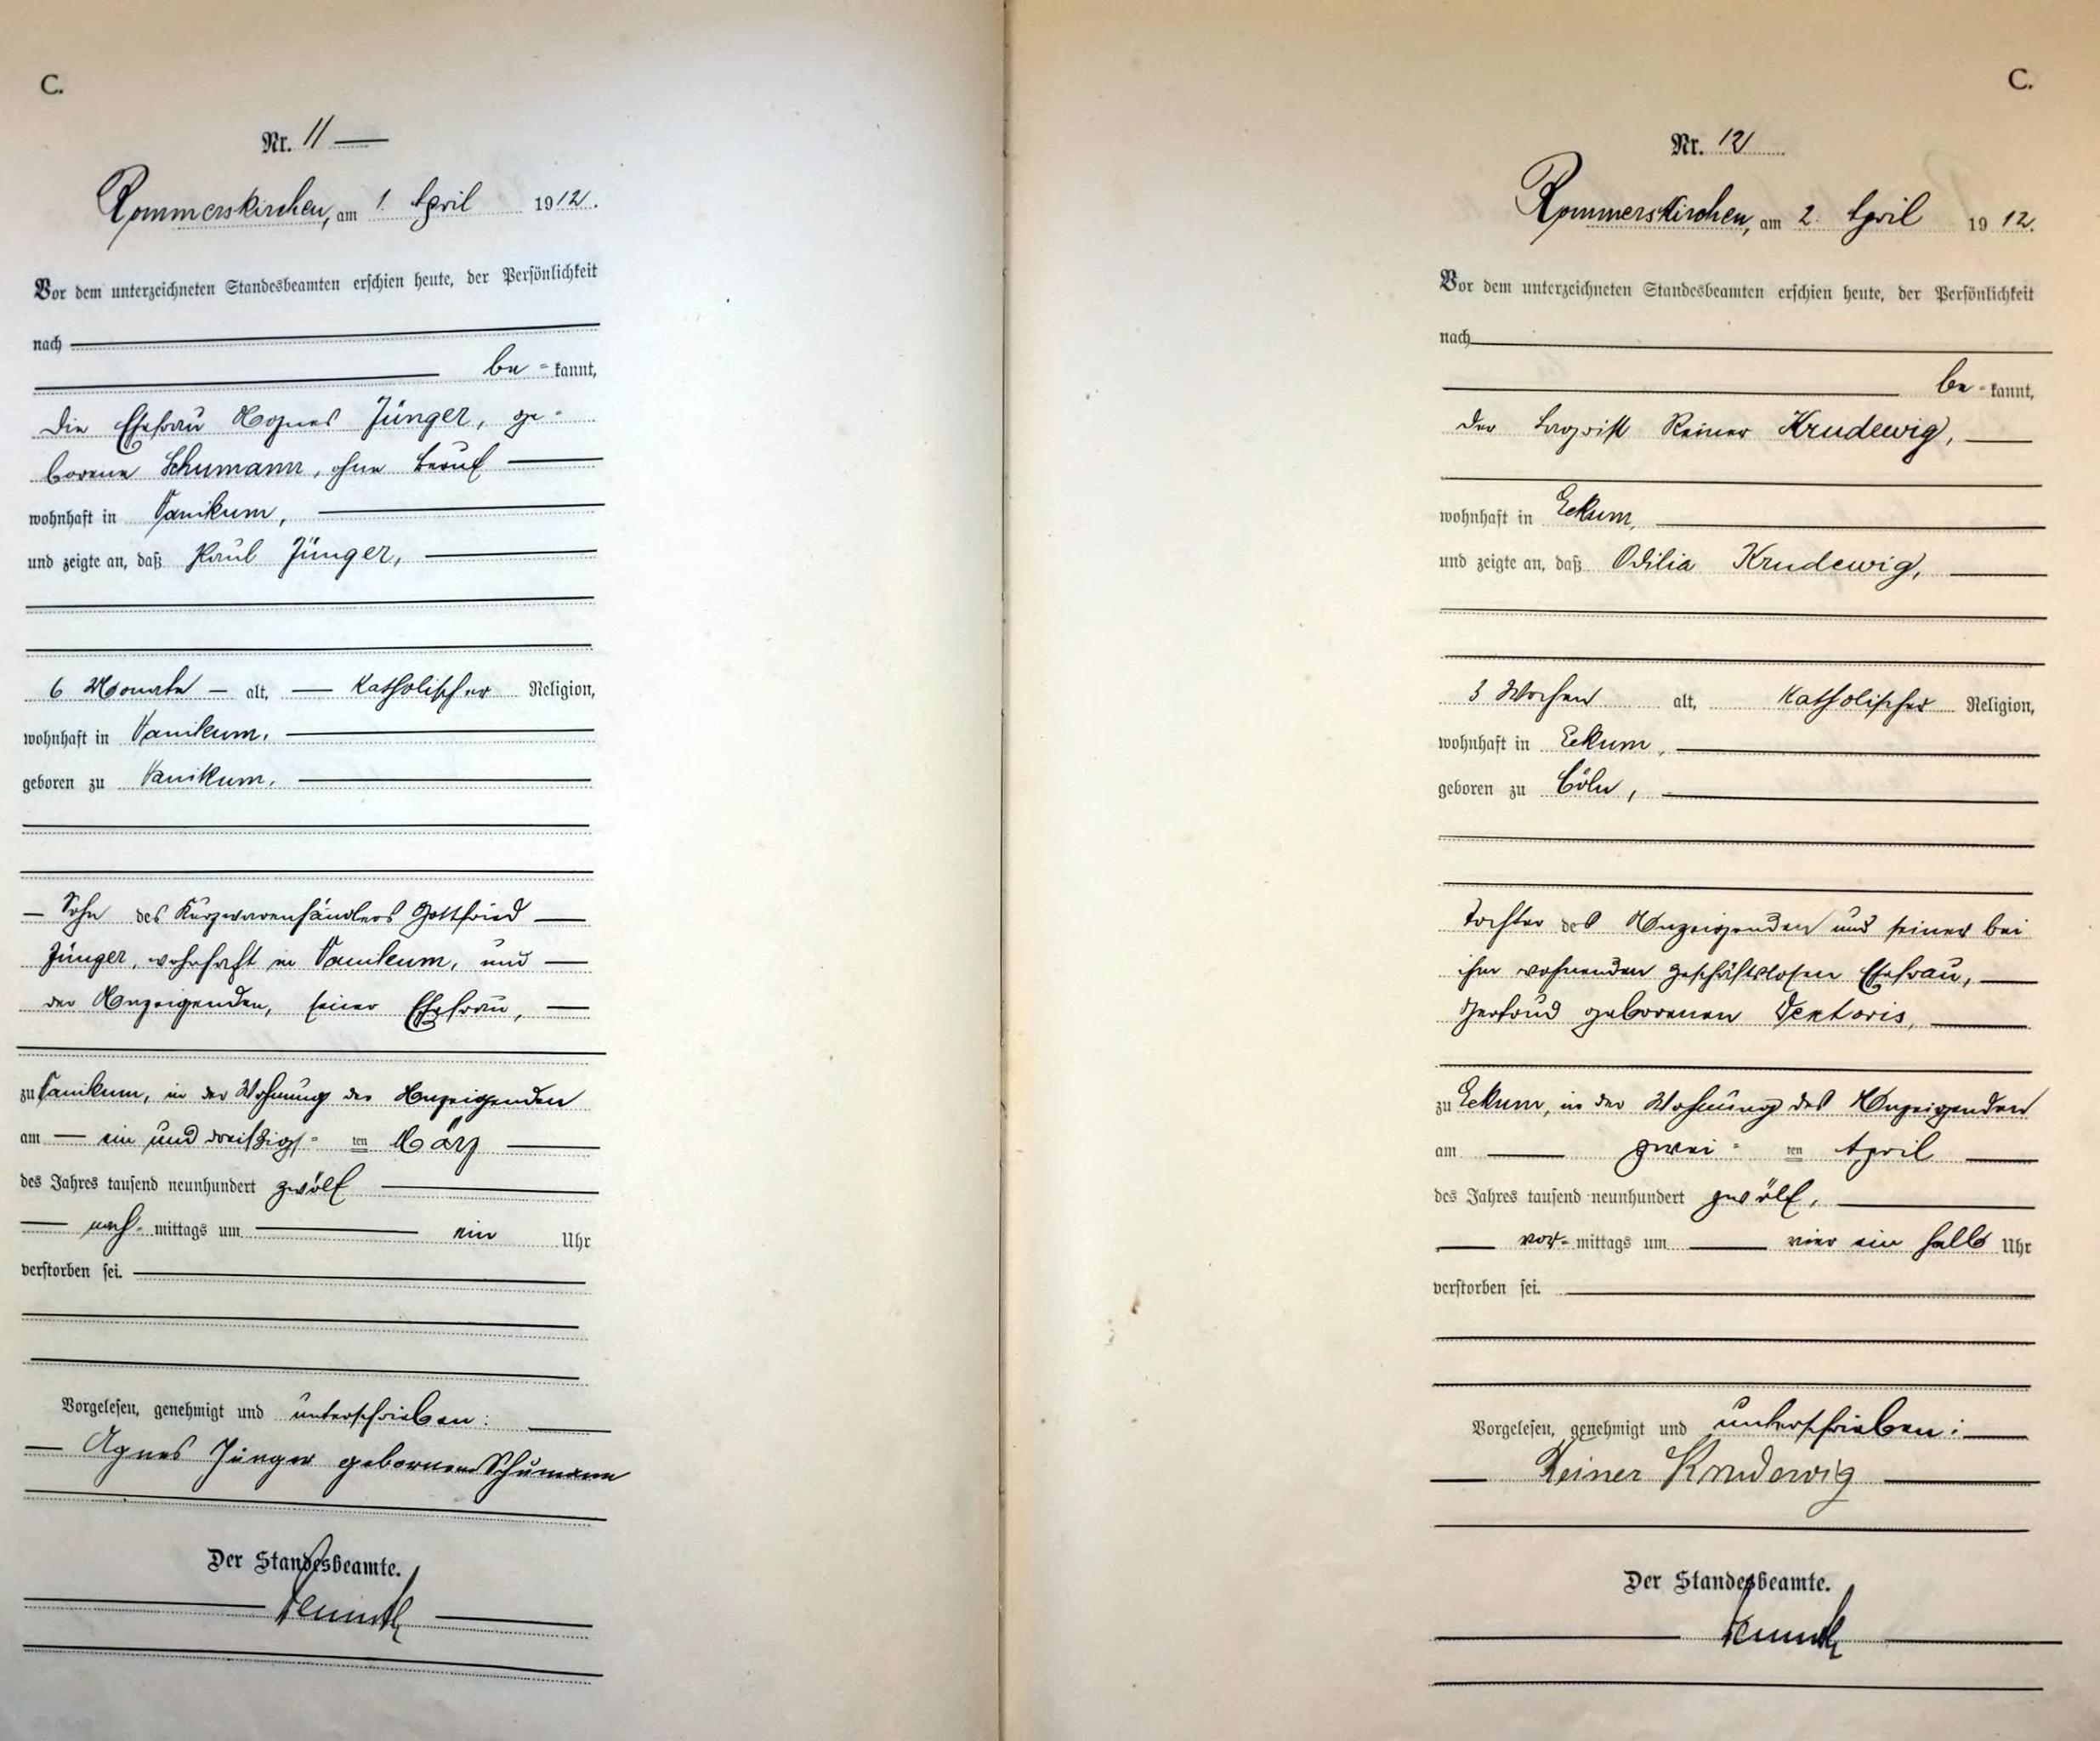 C.
Nr. 11
Rommerskirchen, am 1. April 1912.
Vor dem unterzeichneten Standesbeamten erschien heute, der Persönlichkeit
nach
be=kannt,
die Ehefrau Agnes Jünger, ge=
borene Schumann, ohne Beruf
wohnhaft in Vanikum,
und zeigte an, daß Paul Jünger,
6 Monate alt, katholischer Religion,
wohnhaft in Vanikum,
geboren zu Vanikum,
Sohn des Kurzwarenhändlers Gottfried
Jünger, wohnhaft in Vanikum, und
der Anzeigenden, seiner Ehefrau,
zu Vanikum, in der Wohnung der Anzeigenden
am ein und dreißigs=ten März
des Jahres tausend neunhundert zwölf
nach=mittags um ein Uhr
verstorben sei.
Vorgelesen, genehmigt und unterschrieben:
Agnes Jünger geborene Schumann
Der Standesbeamte.
C.
Nr. 12
Rommerskirchen, am 2. April 1912.
Vor dem unterzeichneten Standesbeamten erschien heute, der Persönlichkeit
nach
be=kannt,
der Reiner Krudewig,
wohnhaft in Eckum,
und zeigte an, daß Odilia Krudewig,
3 Wochen alt, katholischer Religion,
wohnhaft in Eckum,
geboren zu Cöln,
Tochter des Anzeigenden und seiner bei
ihm wohnenden geschäftslosen Ehefrau,
Gertrud geborenen
zu Eckum, in der Wohnung des Anzeigenden
am zwei=ten April
des Jahres tausend neunhundert zwölf,
vor=mittags um vier ein halb Uhr
verstorben sei.
Vorgelesen, genehmigt und unterschrieben:
Reiner Krudewig
Der Standesbeamte.